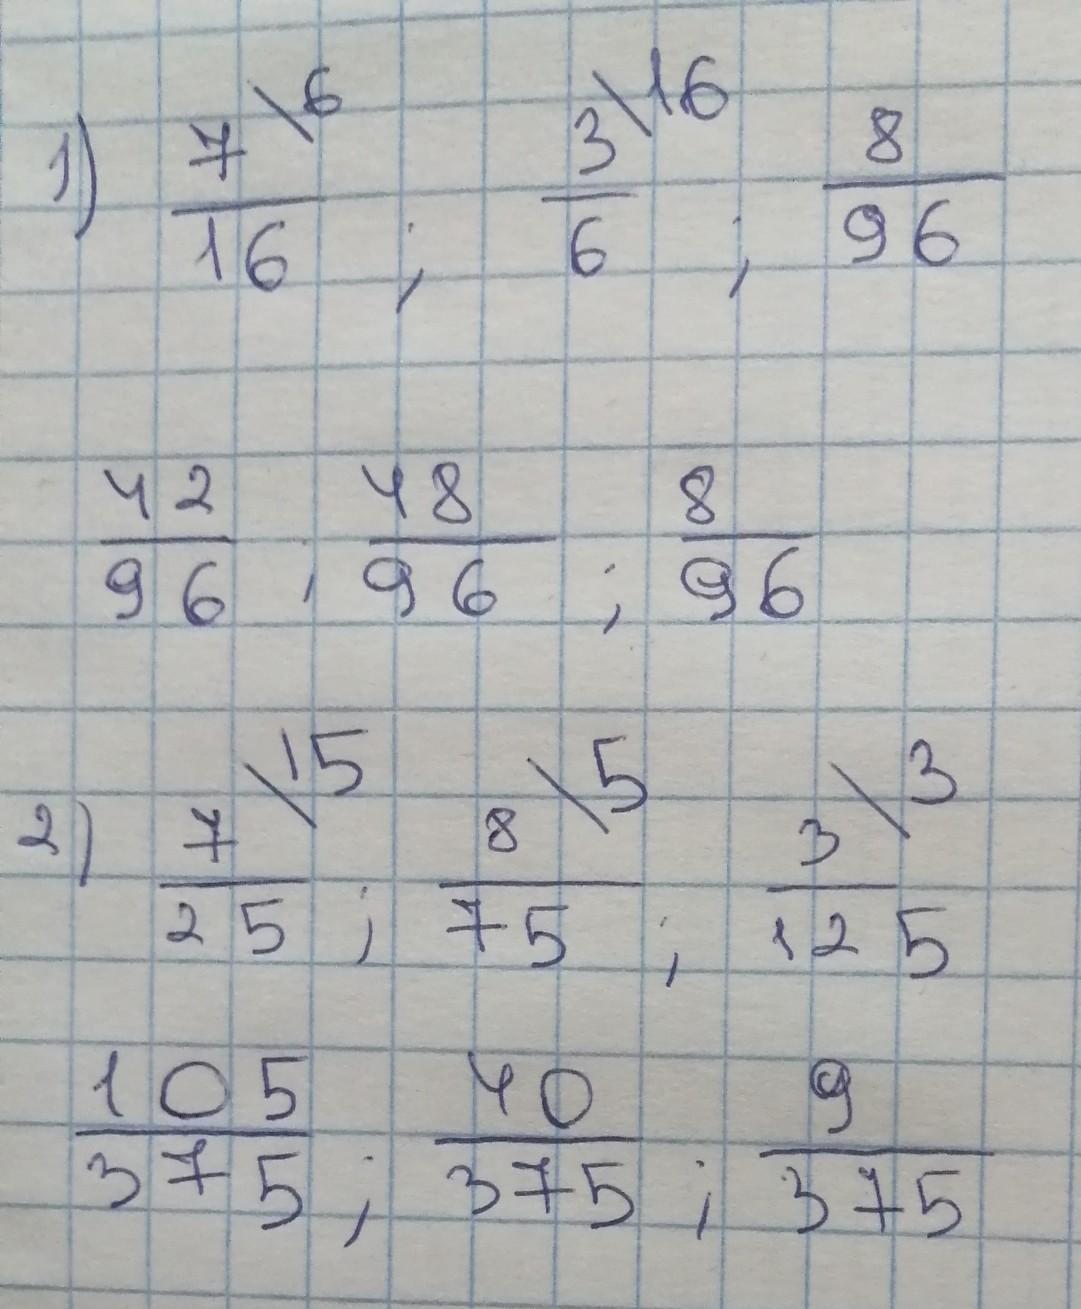 1) 7/16 \6 ; 3/6 \16 ; 8/96
42/96 ; 48/96 ; 8/96
2) 7/25 \15 ; 8/75 \5 ; 3/125 \3
105/375 ; 40/375 ; 9/375